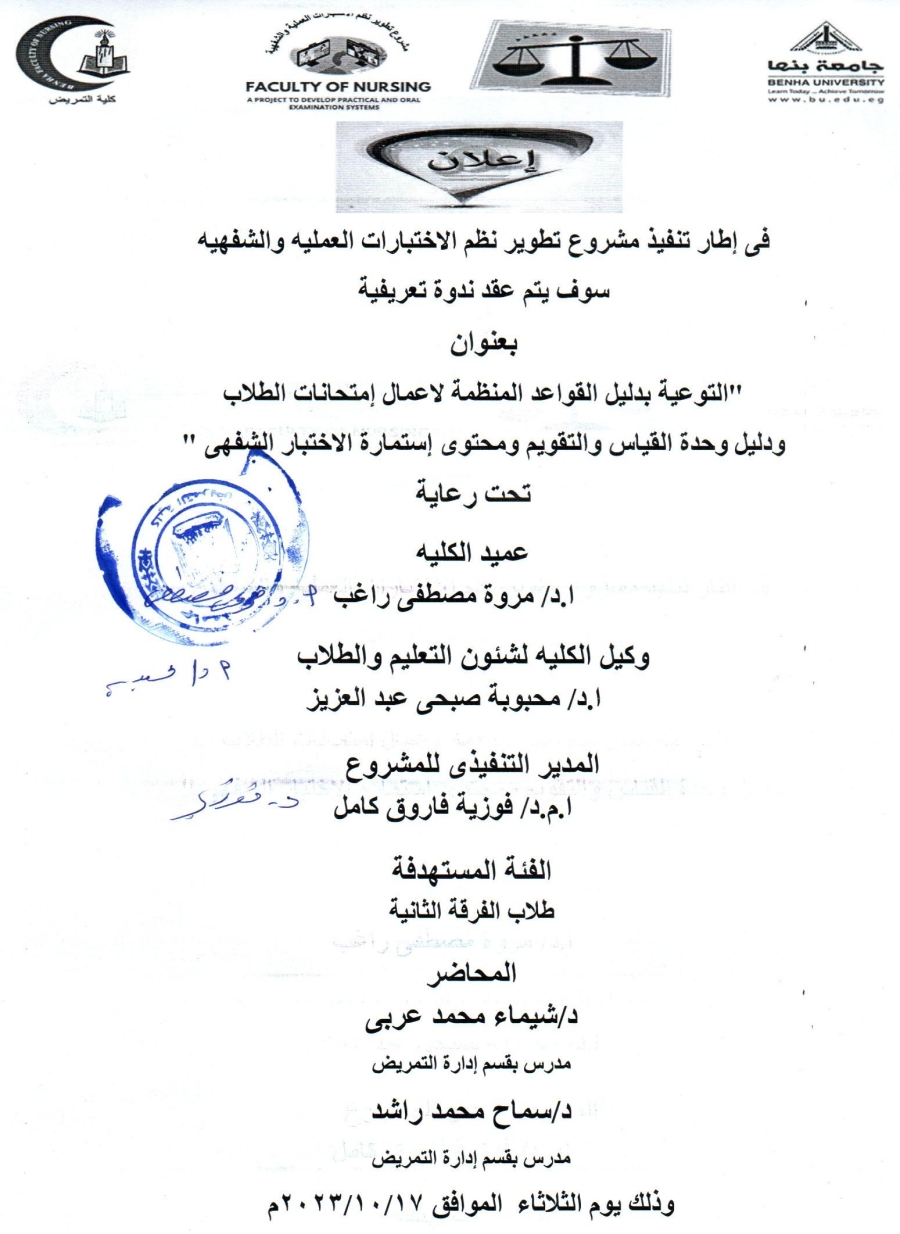 BENHA FACULTY OF NURSING
كلية التمريض
مشروع تطوير نظم الاختبارات العملية والشفهية
FACULTY OF NURSING
A PROJECT TO DEVELOP PRACTICAL AND ORAL
EXAMINATION SYSTEMS
جامعة بنها
BENHA UNIVERSITY
Learn Today ... Achieve Tomorrow
www.bu.edu.eg
إعلان
فى إطار تنفيذ مشروع تطوير نظم الاختبارات العمليه والشفهيه
سوف يتم عقد ندوة تعريفية
بعنوان
"التوعية بدليل القواعد المنظمة لاعمال إمتحانات الطلاب
ودليل وحدة القياس والتقويم ومحتوى إستمارة الاختبار الشفهى "
تحت رعاية
عميد الكليه
ا.د/ مروة مصطفى راغب
وكيل الكليه لشئون التعليم والطلاب
ا.د/ محبوبة صبحى عبد العزيز
المدير التنفيذى للمشروع
ا.م.د/ فوزية فاروق كامل
الفئة المستهدفة
طلاب الفرقة الثانية
المحاضر
د/شيماء محمد عربى
مدرس بقسم إدارة التمريض
د/سماح محمد راشد
مدرس بقسم إدارة التمريض
وذلك يوم الثلاثاء الموافق ٢٠٢٣/١٠/١٧م